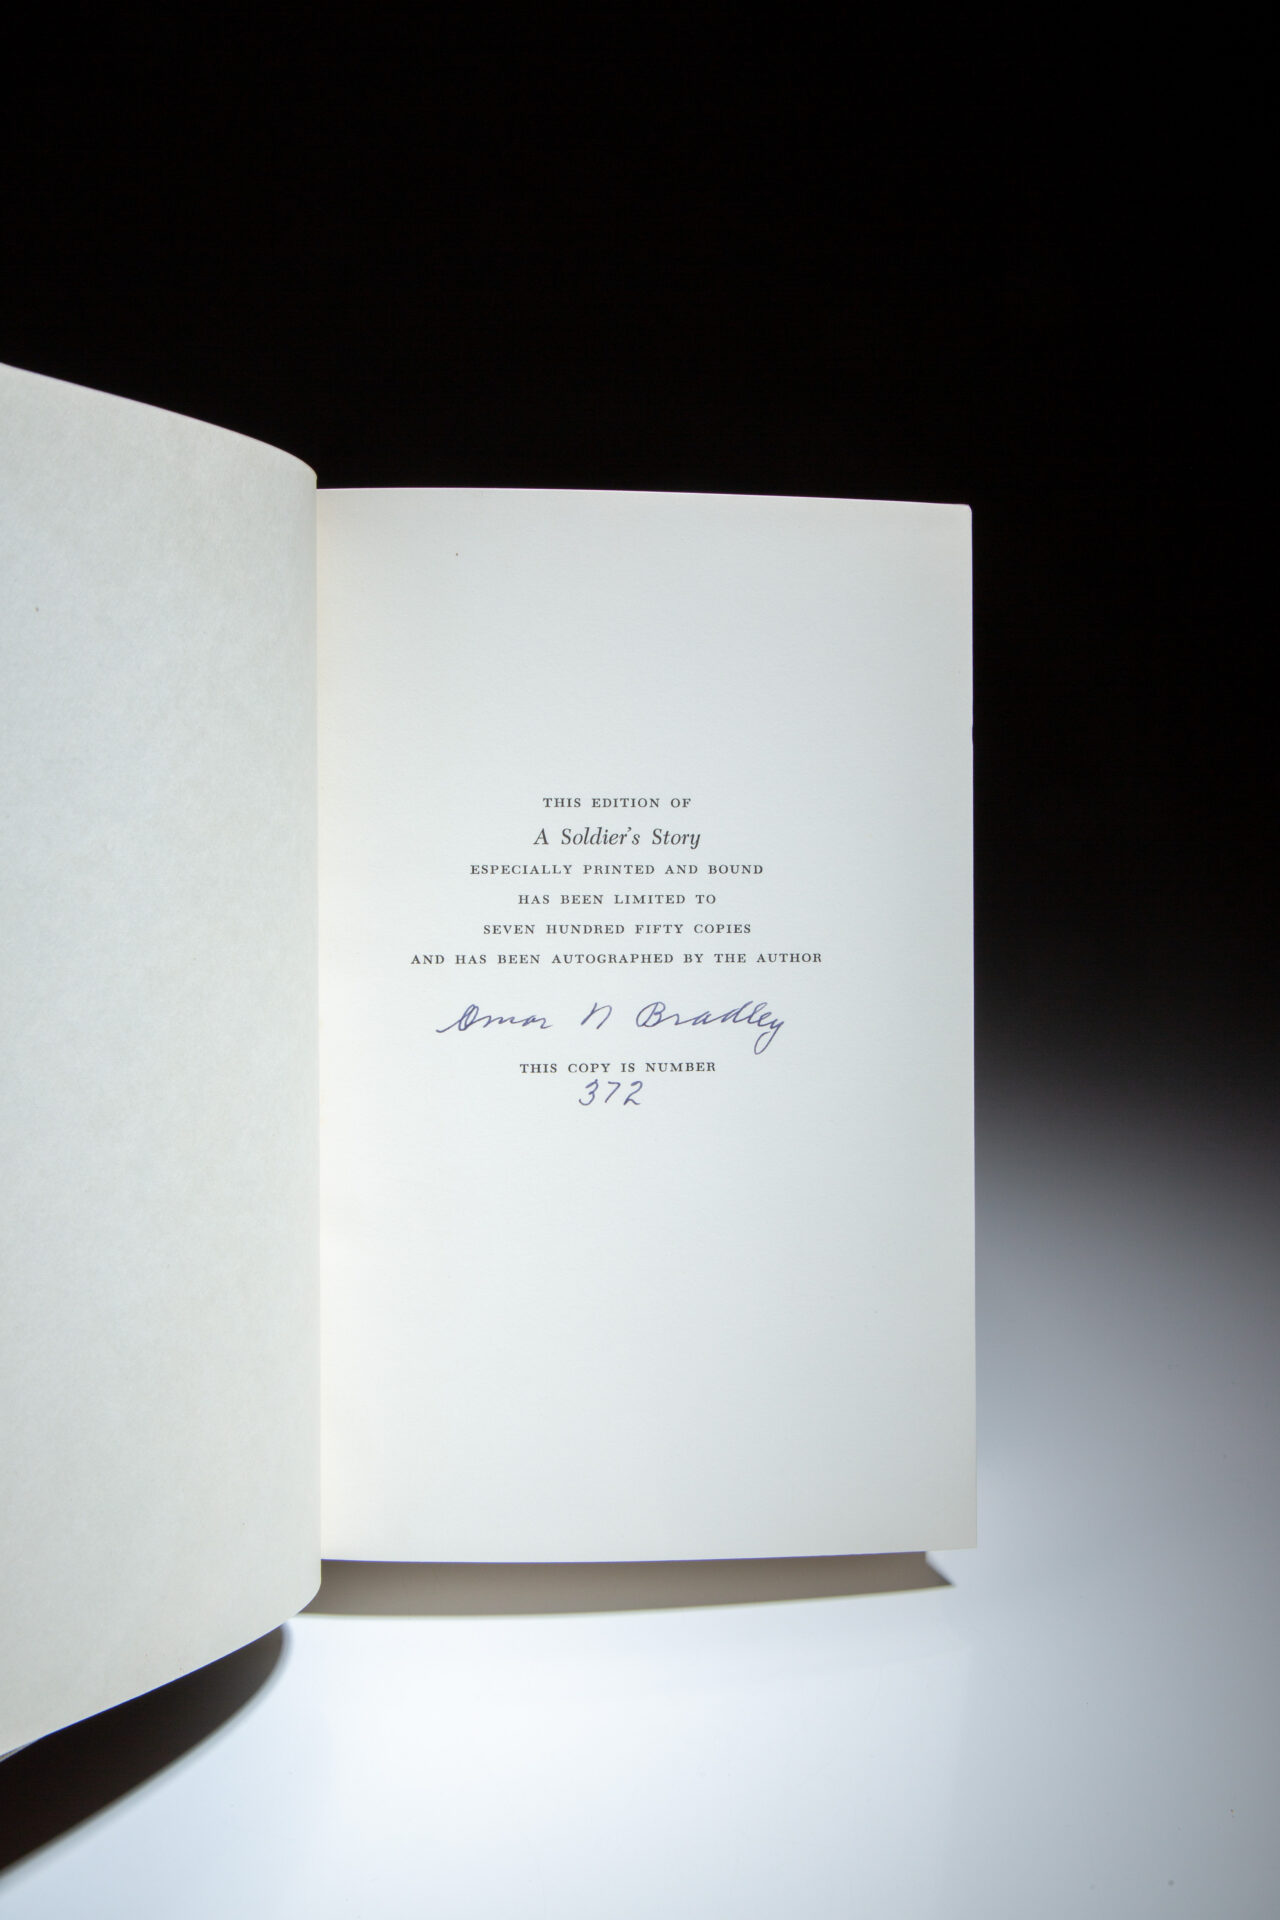 THIS EDITION OF
A Soldier's Story
ESPECIALLY PRINTED AND BOUND
HAS BEEN LIMITED TO
SEVEN HUNDRED FIFTY COPIES
AND HAS BEEN AUTOGRAPHED BY THE AUTHOR
Omar N Bradley
THIS COPY IS NUMBER
372